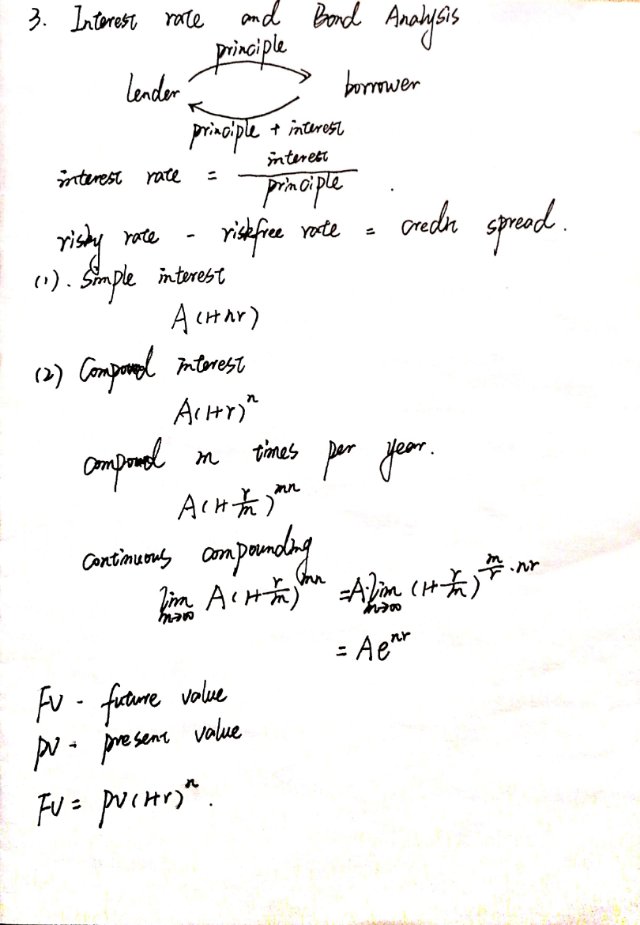 3. Interest rate and Bond Analysis
principle
lender borrower
principle + interest
interest rate = interest / principle .
risky rate - riskfree rate = credit spread.
(1). Simple interest
A(1+nr)
(2) Compound interest
A(1+r)^n
compound m times per year.
A(1+r/m)^mn
continuous compounding
lim m→∞ A(1+r/m)^mn = A·lim m→∞ (1+r/m)^(m/r · nr)
= Ae^nr
FV - future value
PV - present value
FV = PV(1+r)^n.